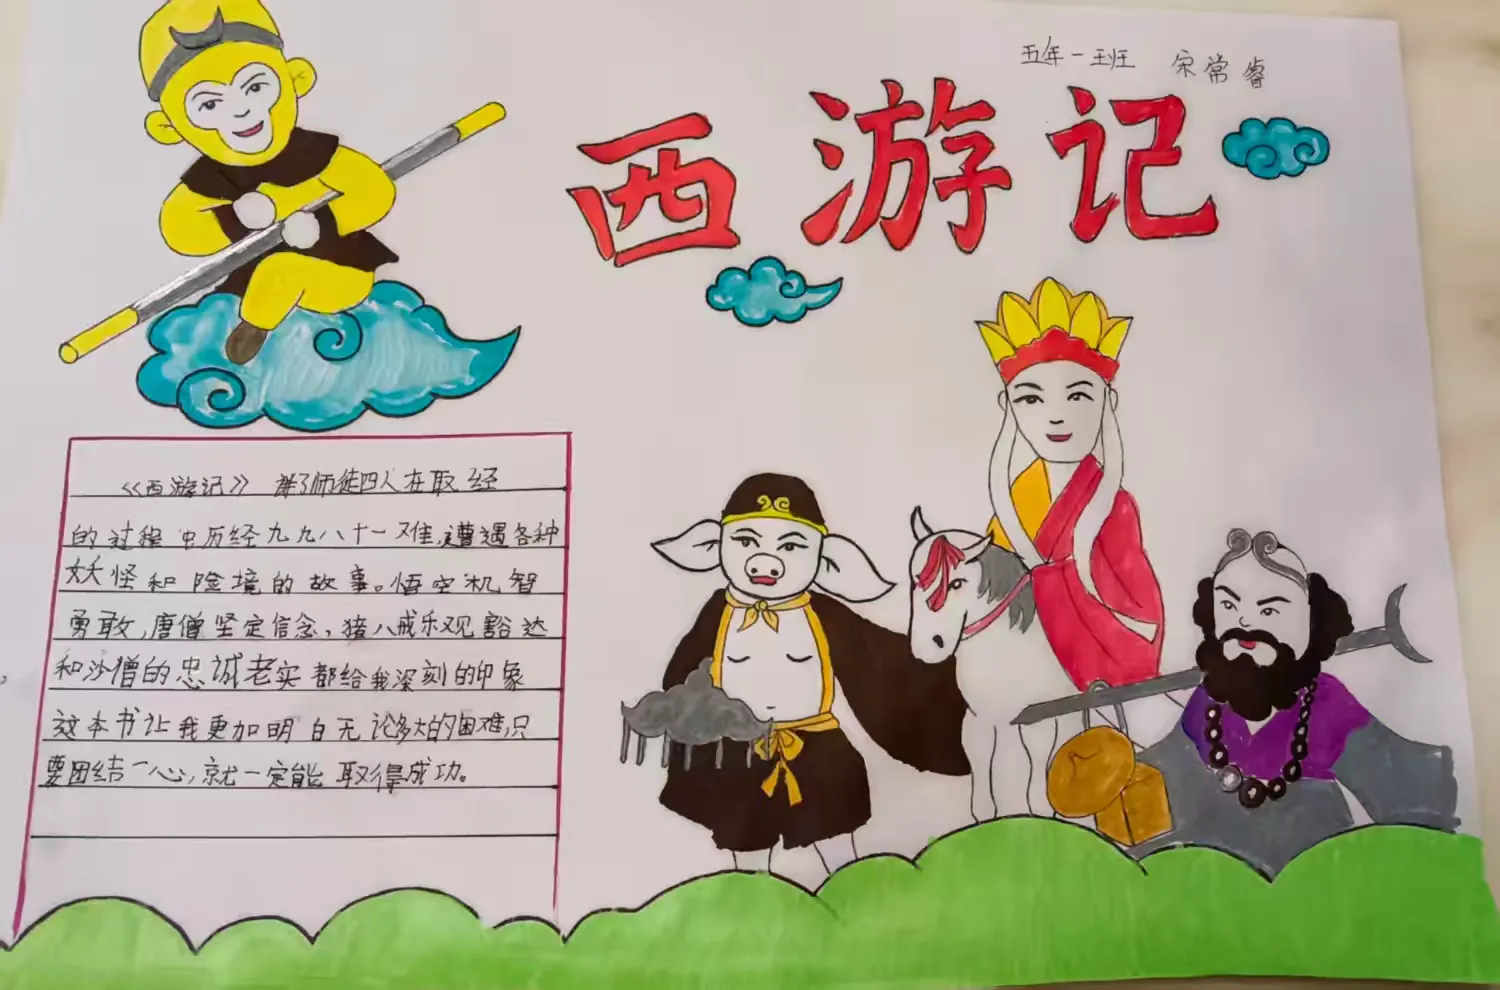 五年一班 宋常睿
西游记
《西游记》讲了师徒四人在取经
的过程中历经九九八十一难,遭遇各种
妖怪和险境的故事。悟空机智
勇敢,唐僧坚定信念,猪八戒乐观豁达
和沙僧的忠诚老实都给我深刻的印象
这本书让我更加明白无论多大的困难,只
要团结一心,就一定能取得成功。